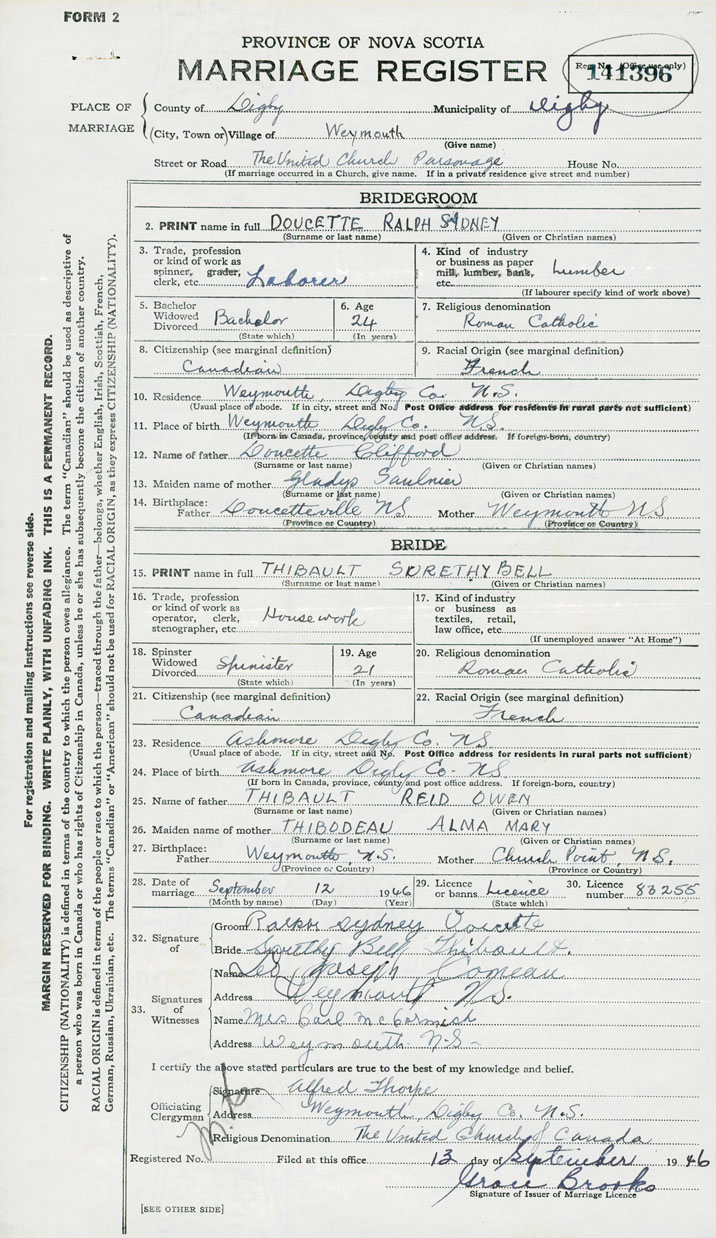 FORM 2
PROVINCE OF NOVA SCOTIA
MARRIAGE REGISTER
Reg. No. (Office use only)
141396
PLACE OF MARRIAGE
County of Digby Municipality of Digby
(City, Town or) Village of Weymouth
(Give name)
Street or Road The United Church Parsonage House No.
(If marriage occurred in a Church, give name. If in a private residence give street and number)
BRIDEGROOM
2. PRINT name in full DOUCETTE RALPH SYDNEY
(Surname or last name) (Given or Christian names)
3. Trade, profession or kind of work as spinner, grader, clerk, etc. Laborer
4. Kind of industry or business as paper mill, lumber, bank, etc. Lumber
(If labourer specify kind of work above)
5. Bachelor Widowed Divorced Bachelor
(State which)
6. Age 24
(In years)
7. Religious denomination
Roman Catholic
8. Citizenship (see marginal definition)
Canadian
9. Racial Origin (see marginal definition)
French
10. Residence Weymouth, Digby Co. N.S.
(Usual place of abode. If in city, street and No. Post Office address for residents in rural parts not sufficient)
11. Place of birth Weymouth Digby Co. N.S.
(If born in Canada, province, county and post office address. If foreign-born, country)
12. Name of father Doucette Clifford
(Surname or last name) (Given or Christian names)
13. Maiden name of mother Gladys Saulnier
(Surname or last name) (Given or Christian names)
14. Birthplace: Father Doucetteville NS Mother Weymouth NS
(Province or Country) (Province or Country)
BRIDE
15. PRINT name in full THIBAULT DORETHY BELL
(Surname or last name) (Given or Christian names)
16. Trade, profession or kind of work as operator, clerk, stenographer, etc. Housework
17. Kind of industry or business as textiles, retail, law office, etc.
(If unemployed answer "At Home")
18. Spinster Widowed Divorced Spinister
(State which)
19. Age 21
(In years)
20. Religious denomination
Roman Catholic
21. Citizenship (see marginal definition)
Canadian
22. Racial Origin (see marginal definition)
French
23. Residence Ashmore Digby Co. NS
(Usual place of abode. If in city, street and No. Post Office address for residents in rural parts not sufficient)
24. Place of birth Ashmore Digby Co. NS.
(If born in Canada, province, county and post office address. If foreign-born, country)
25. Name of father THIBAULT REID OWEN
(Surname or last name) (Given or Christian names)
26. Maiden name of mother THIBODEAU ALMA MARY
(Surname or last name) (Given or Christian names)
27. Birthplace: Father Weymouth, N.S. Mother Church Point, N.S.
(Province or Country) (Province or Country)
28. Date of marriage September 12 1946
(Month by name) (Day) (Year)
29. Licence or banns Licence
(State which)
30. Licence number 83255
32. Signature of
Groom Sydney
Bride Dorethy Bell Thibault.
33. Signatures of Witnesses
Name Leo Joseph Comeau
Address Weymouth N.S.
Name Mrs Carl McCormick
Address Weymouth N.S.
I certify the above stated particulars are true to the best of my knowledge and belief.
Officiating Clergyman
Signature Alfred Thorpe
Address Weymouth, Digby Co. N.S.
Religious Denomination The United Church of Canada
Registered No. Filed at this office 13 day of September 1946
Grace Brooks
Signature of Issuer of Marriage Licence
[SEE OTHER SIDE]
For registration and mailing instructions see reverse side.
MARGIN RESERVED FOR BINDING. WRITE PLAINLY, WITH UNFADING INK. THIS IS A PERMANENT RECORD.
CITIZENSHIP (NATIONALITY) is defined in terms of the country to which the person owes allegiance. The term "Canadian" should be used as descriptive of
a person who was born in Canada or who has rights of Citizenship in Canada, unless he or she has subsequently become the citizen of another country.
RACIAL ORIGIN is defined in terms of the people or race to which the person—traced through the father—belongs, whether English, Irish, Scottish, French,
German, Russian, Ukrainian, etc. The terms "Canadian" or "American" should not be used for RACIAL ORIGIN, as they express CITIZENSHIP (NATIONALITY).